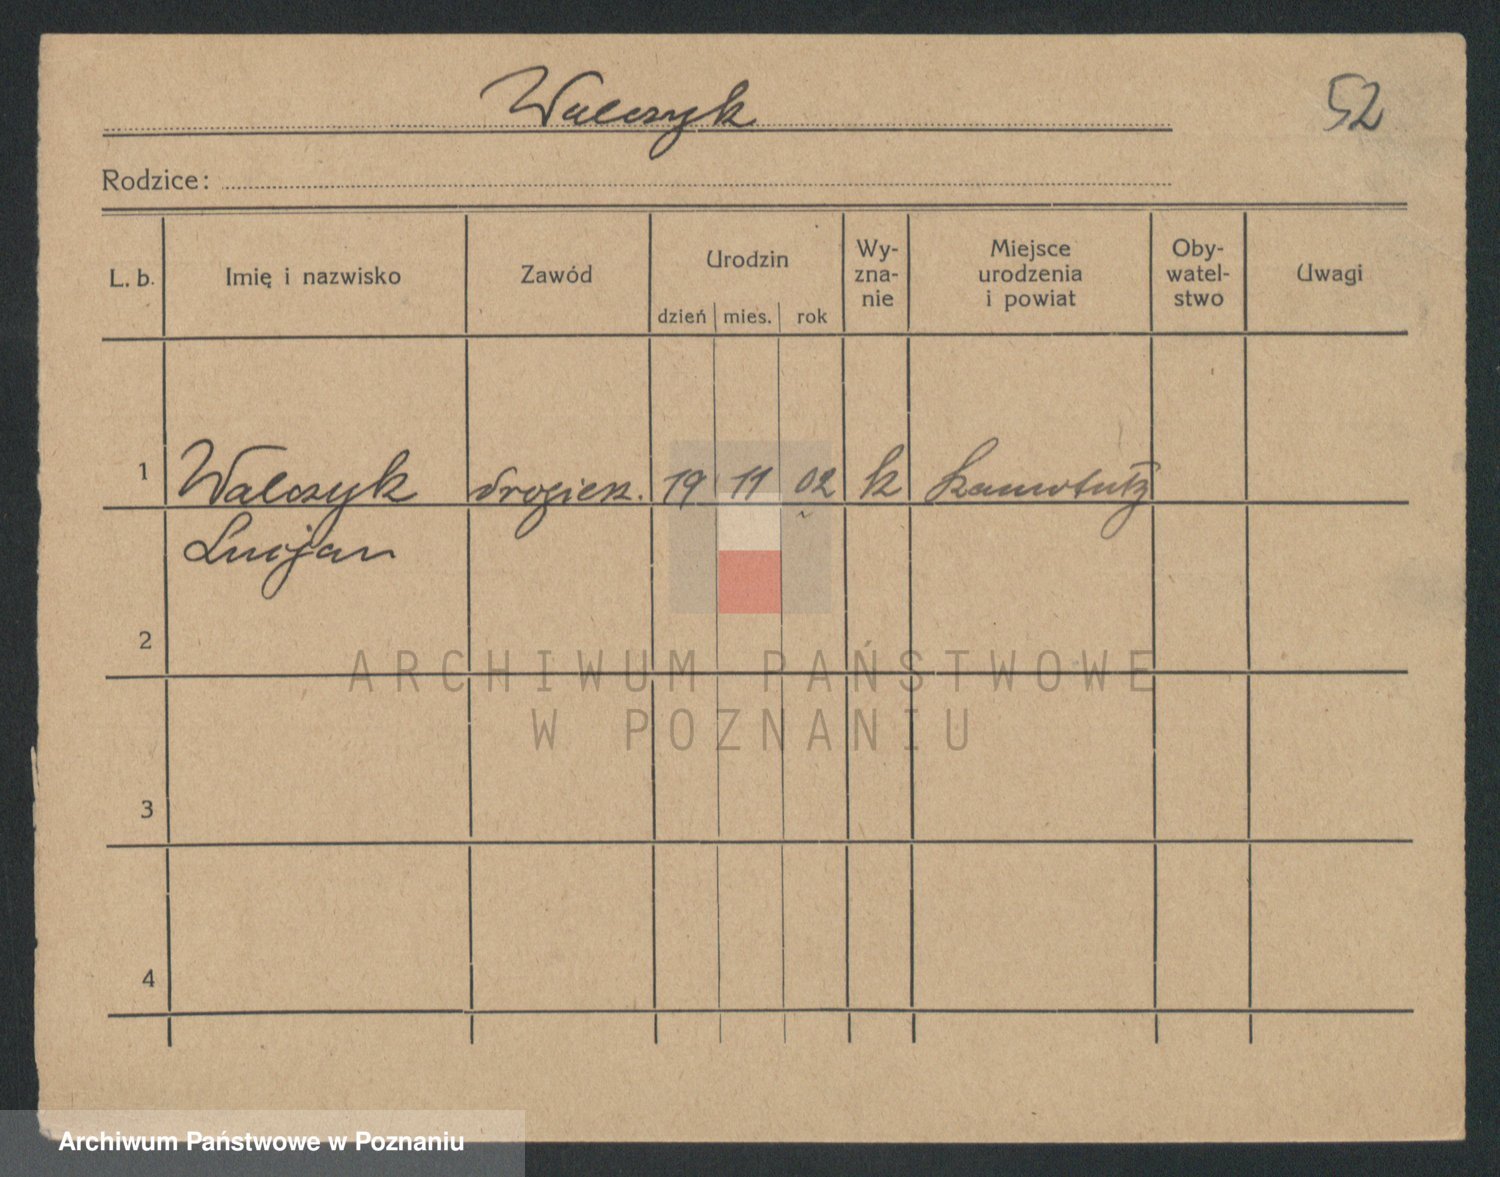 Walczyk
52
Rodzice:
L. b.
Imię i nazwisko
Zawód
Urodzin
dzień mies. rok
Wy-
zna-
nie
Miejsce
urodzenia
i powiat
Oby-
watel-
stwo
Uwagi
1 Walczyk 19 11 02 k
Lucjan
2
3
4
ARCHIWUM PAŃSTWOWE
W POZNANIU
Archiwum Państwowe w Poznaniu